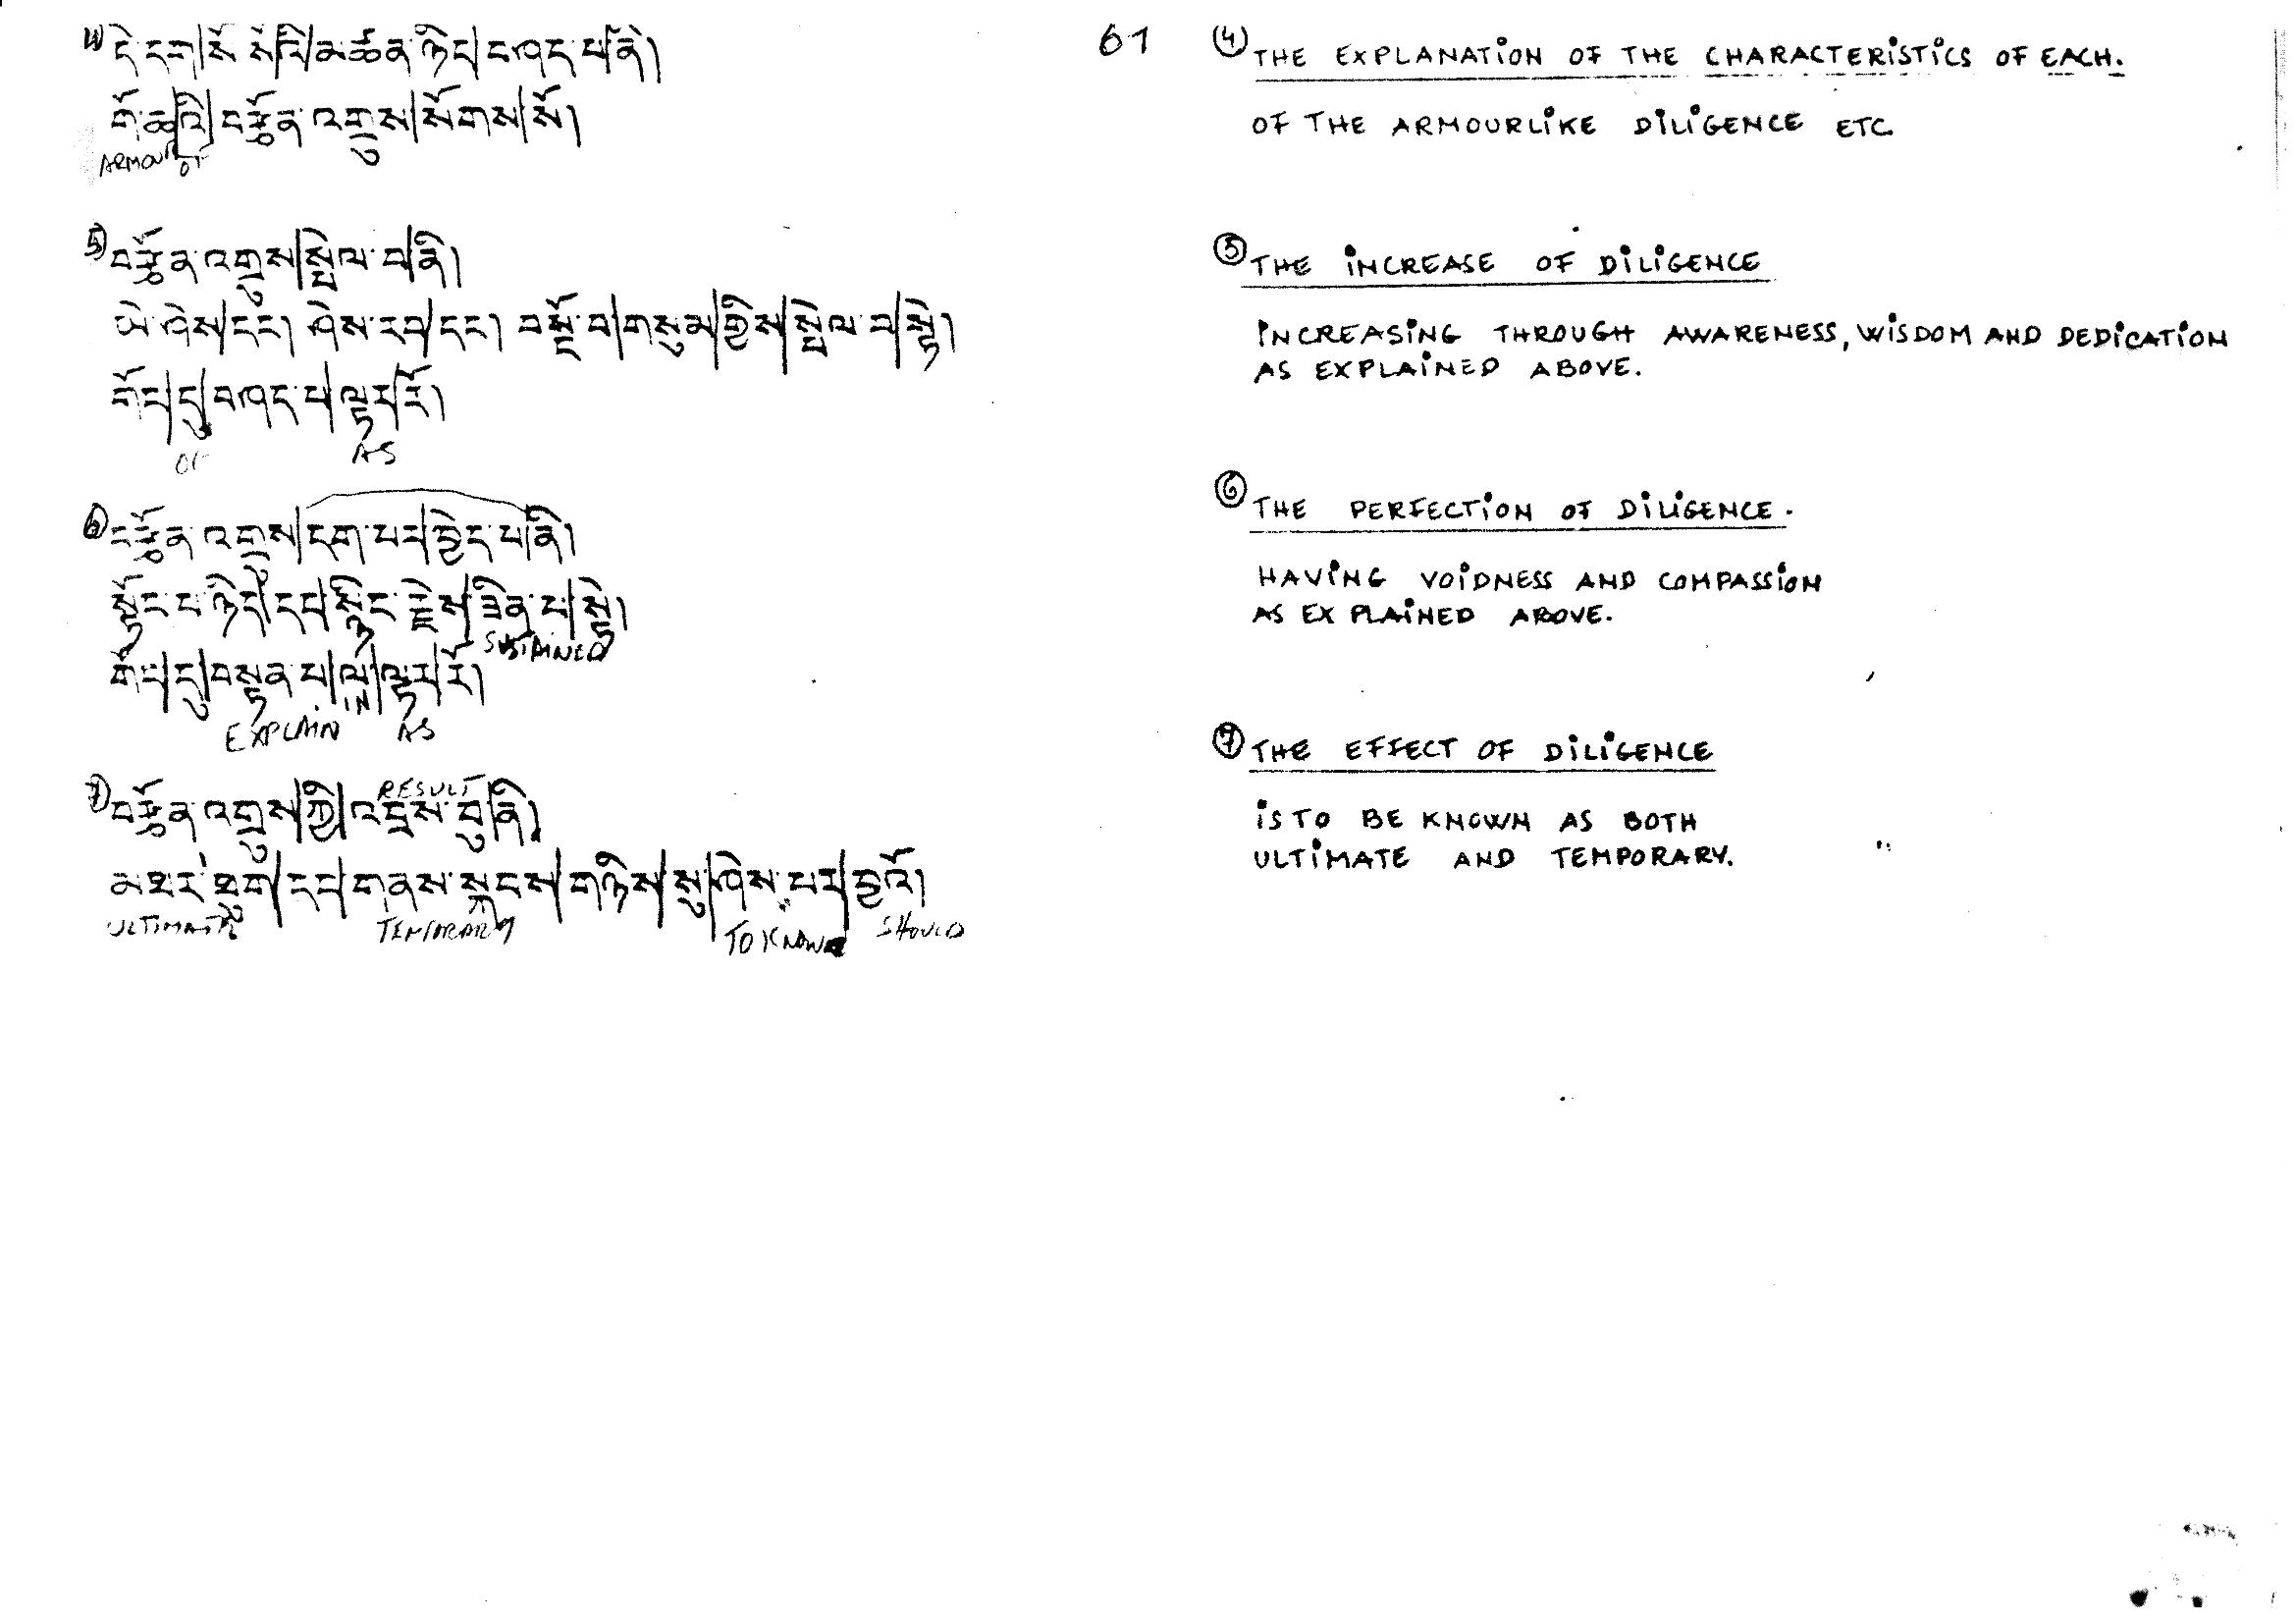 4) དེ་དག|སོ་སོའི|མཚན་ཉིད|བཤད་པ|ནི།
གོ་ཆ|འི|བརྩོན་འགྲུས|སོགས|སོ།
ARMOUR OF
5) བརྩོན་འགྲུས|སྤེལ་བ|ནི།
ཡེ་ཤེས|དང། ཤེས་རབ|དང། བསྔོ་བ|གསུམ|གྱིས|སྤེལ་བ|སྟེ།
གོང|དུ|བཤད་པ|ལྟར|རོ།
AS
6) བརྩོན་འགྲུས|དག་པར|བྱེད་པ|ནི།
སྟོང་པ་ཉིད|དང|སྙིང་རྗེས|ཟིན་པ|སྟེ།
SUSTAINED
གོང|དུ|བསྟན་པ|ལ|ལྟར|རོ།
EXPLAIN IN AS
RESULT
7) བརྩོན་འགྲུས|ཀྱི|འབྲས་བུ|ནི།
མཐར་ཐུག|དང|གནས་སྐབས|གཉིས|སུ|ཤེས་པར|བྱའོ།
ULTIMATE TEMPORARY TO KNOW SHOULD
61
(4) THE EXPLANATION OF THE CHARACTERISTICS OF EACH.
OF THE ARMOURLIKE DILIGENCE ETC
(5) THE INCREASE OF DILIGENCE
INCREASING THROUGH AWARENESS, WISDOM AND DEDICATION
AS EXPLAINED ABOVE.
(6) THE PERFECTION OF DILIGENCE.
HAVING VOIDNESS AND COMPASSION
AS EXPLAINED ABOVE.
(7) THE EFFECT OF DILIGENCE
IS TO BE KNOWN AS BOTH
ULTIMATE AND TEMPORARY.